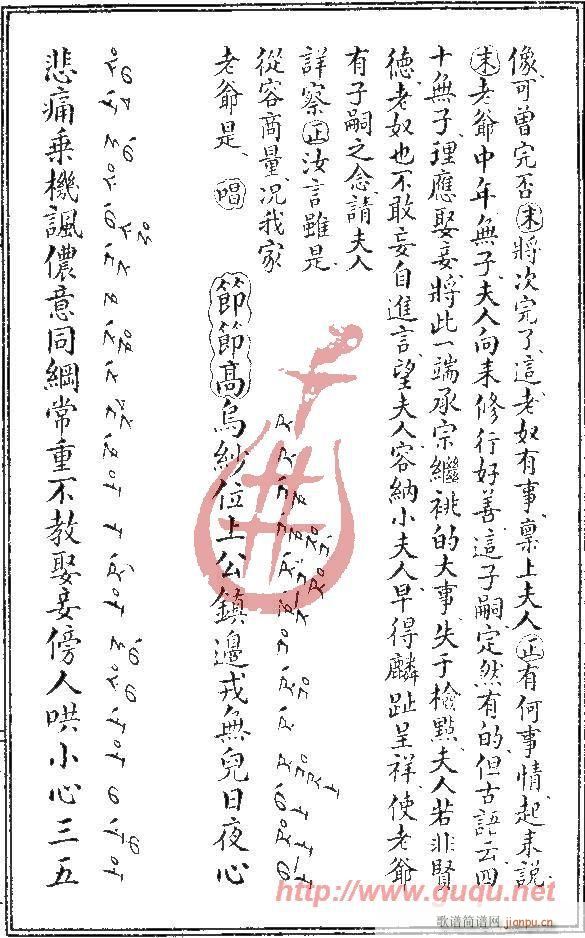 像可曾完否末將次完了這老奴有事稟上夫人正有何事情起來說
末老爺中年無子夫人向来修行好善這子嗣定然有的但古語云四
十無子理應娶妾將此一端承宗繼祧的大事失于檢點夫人若非賢
德老奴也不敢妄自進言望夫人容納小夫人早得麟趾呈祥使老爺
有子嗣之念請夫人
詳察正汝言雖是
從容商量况我家
老爺是唱
節節高烏紗位上公鎮邊戎無兒日夜心
悲痛乗機諷儂意同綱常重不教娶妾傍人哄小心三五
http://www.guqu.net
歌谱简谱网
jianpu.cn